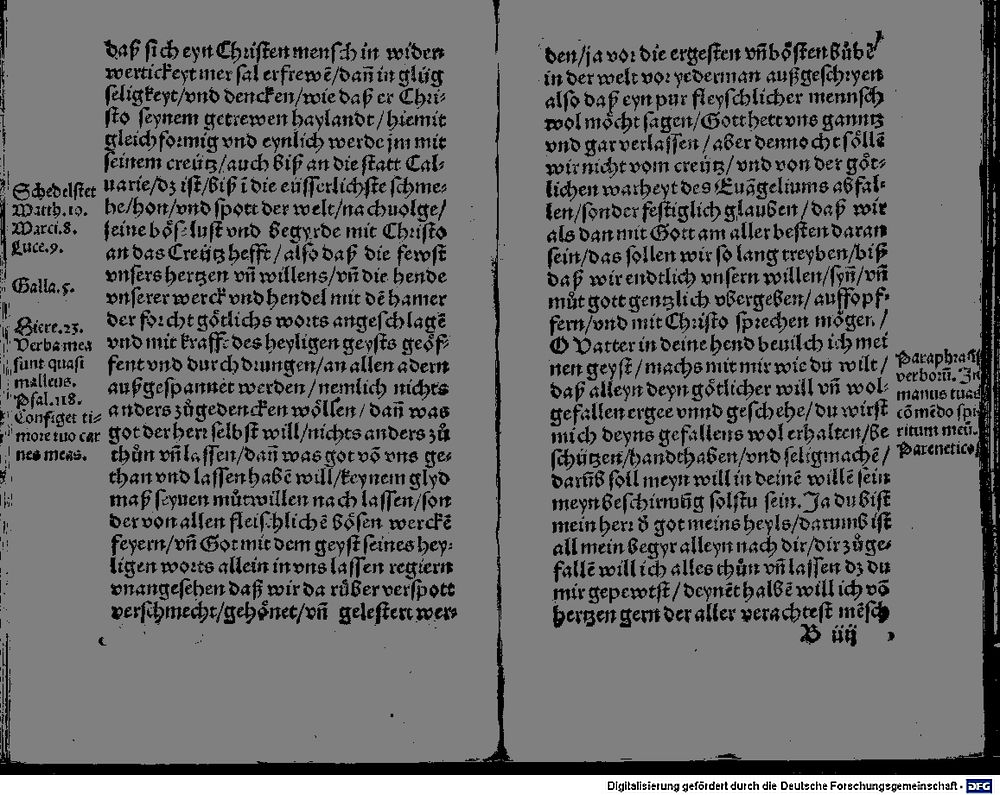 daß sich eyn Christen mensch in widen
wertickeyt mer sal erfrewē/dañ in glüg
seligkeyt/vnd dencken/wie daß er Chri-
sto seynem getrewen haylandt/hiemit
gleichformig vnd eynlich werde jm mit
seinem creütz/auch biß an die statt Cal-
uarie/dz ist/biß ī die eüsserlichste schme-
he/hon/vnd spott der welt/nachuolge/
seine böß lust vnd begyrde mit Christo
an das Creütz hefft/also daß die fewst
vnsers hertzen vñ willens/vñ die hende
vnserer werck vnd hendel mit dē hamer
der forcht götlichs worts angeschlagē
vnd mit krafft des heyligen geysts geöf-
fent vnd durchdrungen/an allen adern
außgespannet werden/nemlich nichts
anders zůgedencken wöllen/dañ was
got der herr selbst will/nichts anders zů
thůn vñ lassen/dañ was got vō vns ge-
than vnd lassen habē will/keynem glyd
maß seynen můtwillen nach lassen/son
der von allen fleischlichē bösen werckē
feyern/vñ Got mit dem geyst seines hey-
ligen worts allein in vns lassen regiern
vnangesehen daß wir darüber verspott
verschmecht/gehönet/vñ gelestert wer-
Schedelstet
Matth.10.
Marci.8.
Luce.9.
Galla.5.
Hiere.23.
Verba mea
sunt quasi
malleus.
Psal.118.
Configet ti-
more tuo car
nes meas.
den/ja vor die ergesten vñ bösten bůbē
in der welt vor yederman außgeschryen
also daß eyn pur fleyschlicher mennsch
wol möcht sagen/Gott hett vns ganntz
vnd gar verlassen/aber dennocht söllē
wir nicht vom creütz/vnd von der göt-
lichen warheyt des Euāgeliums abfal-
len/sonder festiglich glauben/daß wir
als dan mit Gott am aller besten daran
sein/das sollen wir so lang treyben/biß
daß wir endtlich vnsern willen/syñ/vñ
můt gott gentzlich vbergeben/auffopf-
fern/vnd mit Christo sprechen mögen/
O Vatter in deine hend beuilch ich mei
nen geyst/machs mit mir wie du wilt/
daß alleyn deyn götlicher will vñ wol-
gefallen ergee vnnd geschehe/du wirst
mich deyns gefallens wol erhalten/be
schützen/handthaben/vnd seligmachē/
darūb soll meyn will in deinē willē sein
meyn beschirmūg solstu sein. Ja du bist
mein herr ď got meins heyls/darumb ist
all mein begyr alleyn nach dir/dir zůge-
fallē will ich alles thůn vñ lassen dz du
mir gepewtst/deynēthalbē will ich vō
hertzen gern der aller verachtest mēsch
B iiij
Paraphrasis
verborū. In
manus tuas
cōmēdo spi-
ritum meū.
Parenetico
Digitalisierung gefördert durch die Deutsche Forschungsgemeinschaft - DFG